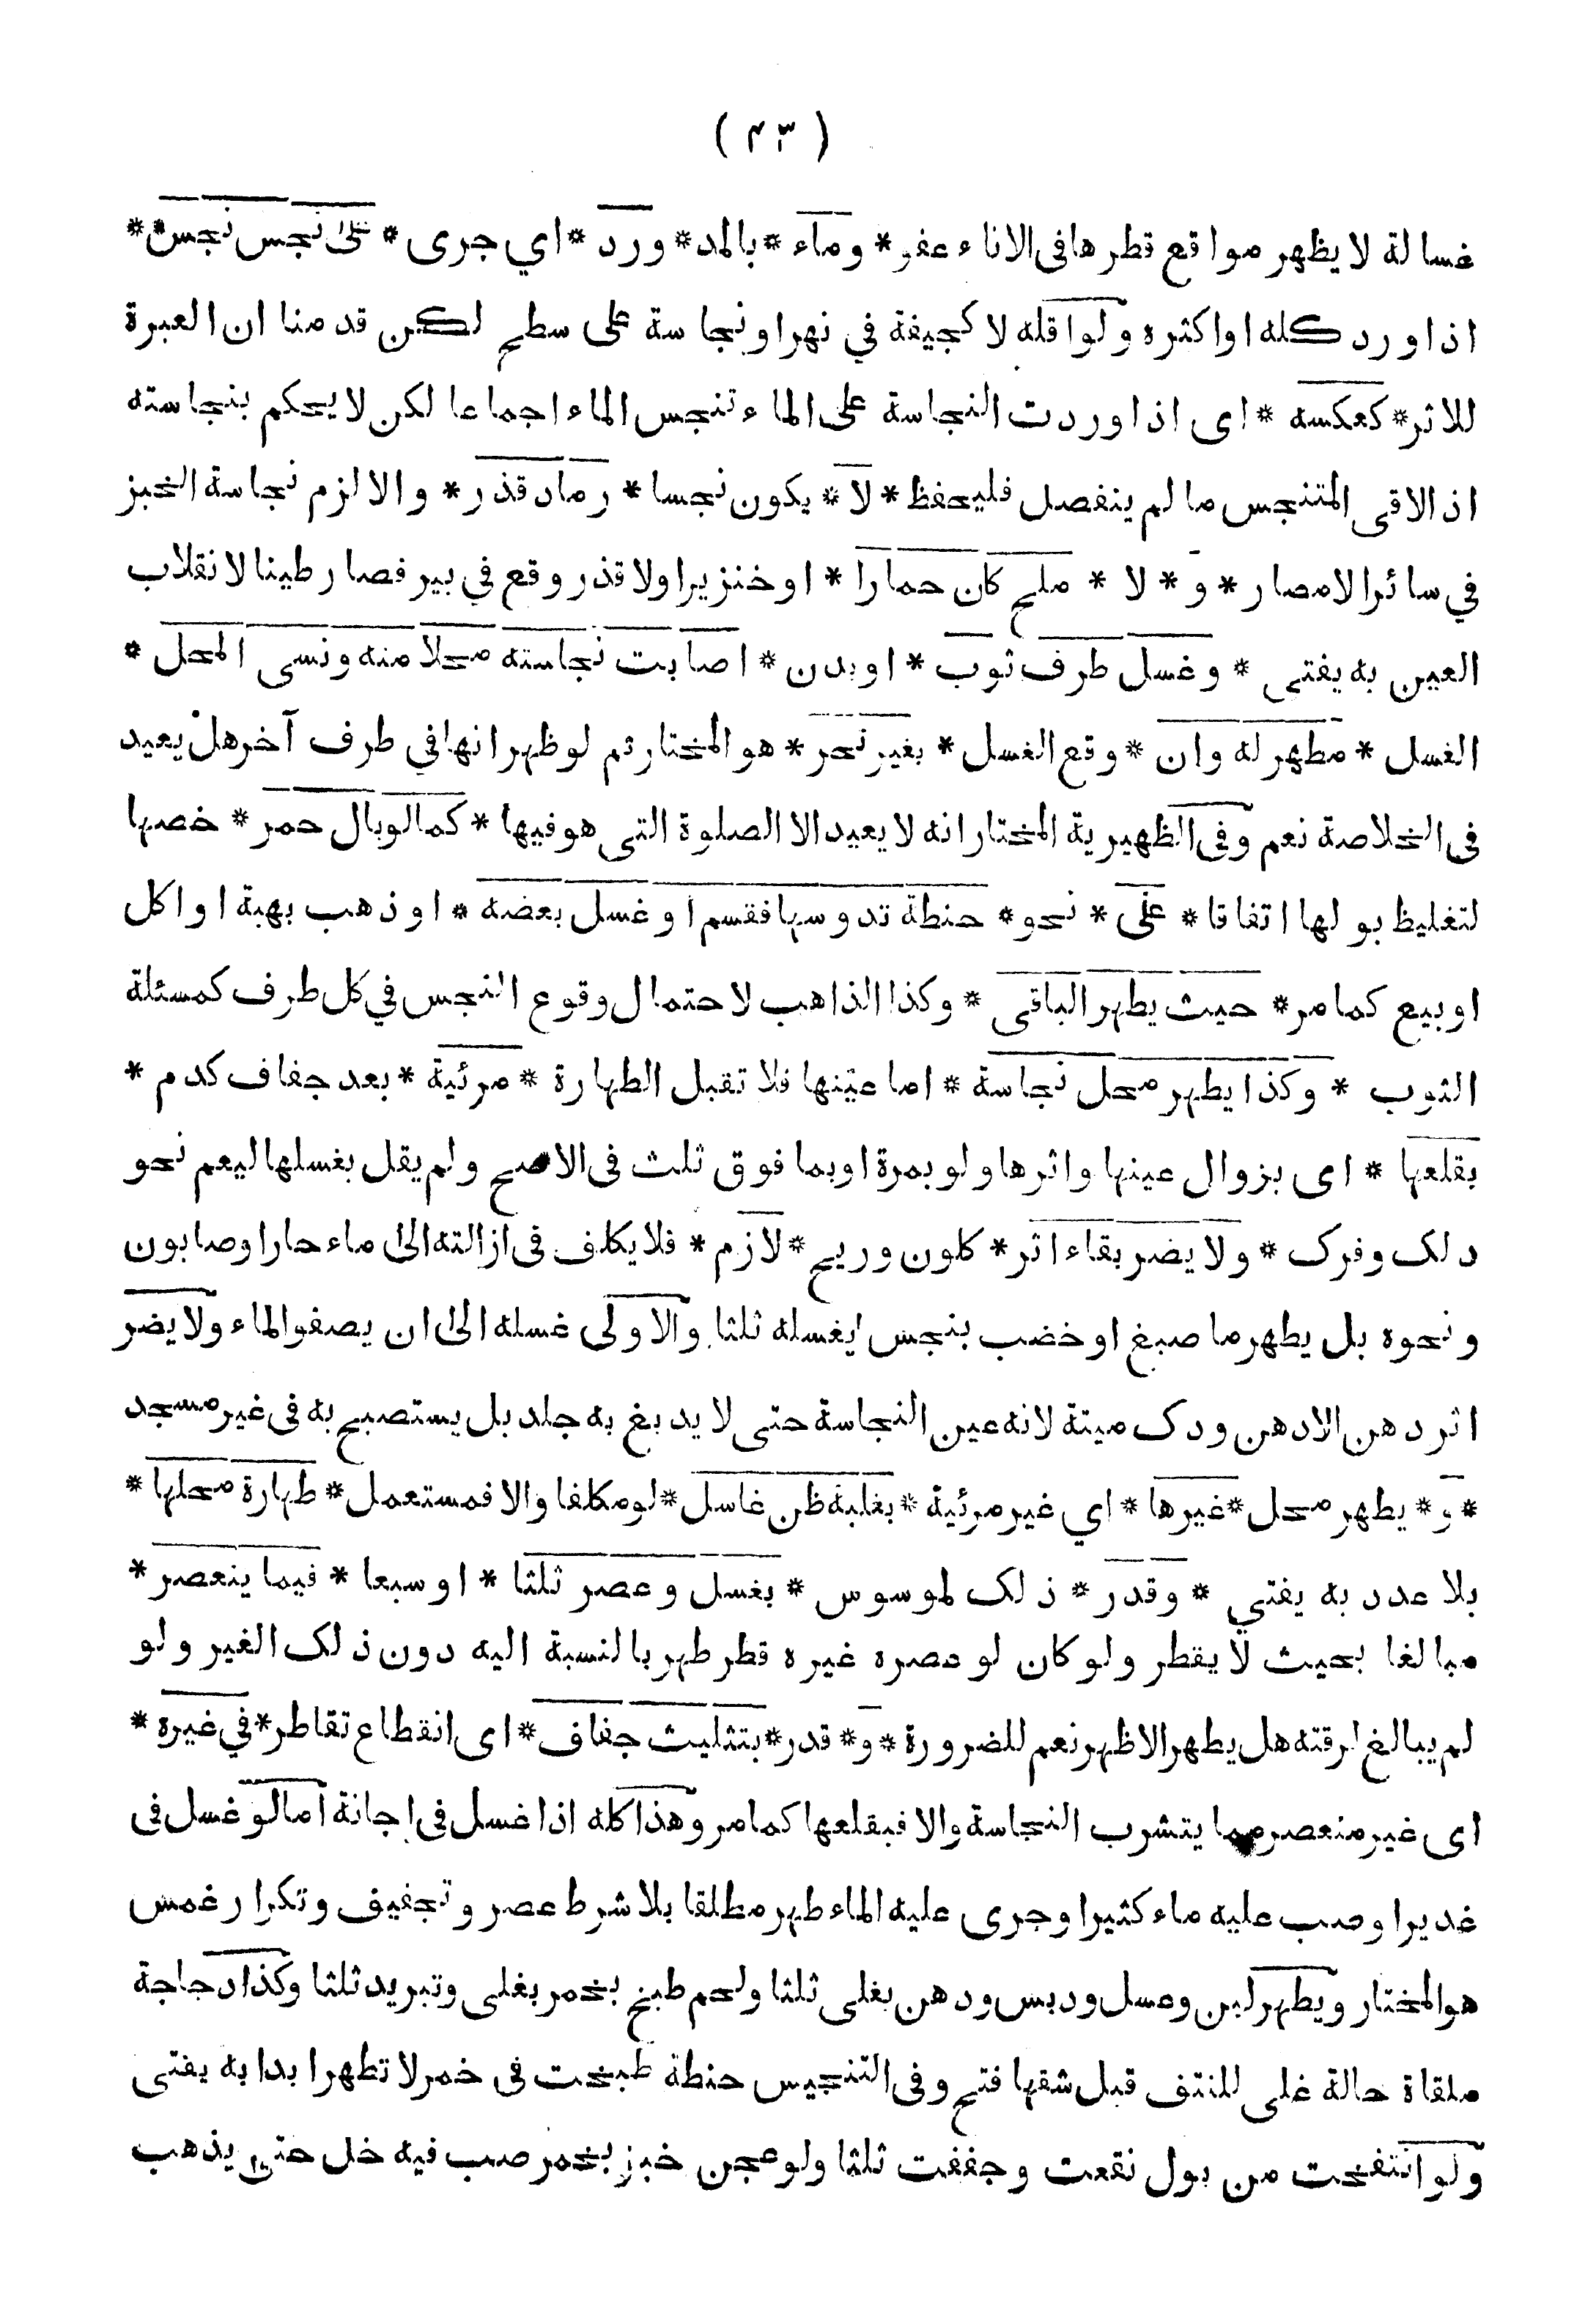 ( ۴۳ )
غسالة لا يظهر مواقع قطرها فى الاناء عفو * وماء * بالمد * ورد * اي جرى * على نجس نجس * *
اذا ورد كله او اكثره ولو اقله لا كجيفة في نهر او نجاسة على سطح لكن قدمنا ان العبرة
للاثر * كعكسه * اى اذا وردت النجاسة على الماء تنجس الماء اجماعا لكن لا يحكم بنجاسته
اذا لاقى المتنجس ما لم ينفصل فليحفظ * لا * يكون نجسا * رماد قذر * والا لزم نجاسة الخبز
في سائر الامصار * و * لا * ملح كان حمارا * او خنزيرا ولا قذر وقع في بير فصار طينا لانقلاب
العين به يفتى * وغسل طرف ثوب * او بدن * اصابت نجاسته محلا منه ونسى المحل *
الغسل * مطهر له وان * وقع الغسل * بغير نحر * هو المختار ثم لو ظهر انها في طرف آخر هل يعيد
فى الخلاصة نعم وفى الظهيرية المختار انه لا يعيد الا الصلوة التى هو فيها * كما لو بال حمر * خصها
لتغليظ بولها اتفاقا * على * نحو * حنطة تدوسها فقسم او غسل بعضه * او ذهب بهبة او اكل
او بيع كما مر * حيث يطهر الباقى * وكذا الذاهب لاحتمال وقوع النجس في كل طرف كمسئلة
الثوب * وكذا يطهر محل نجاسة * اما عينها فلا تقبل الطهارة * مرئية * بعد جفاف كدم *
بقلعها * اى بزوال عينها واثرها ولو بمرة او بما فوق ثلث فى الاصح ولم يقل بغسلها ليعم نحو
دلک وفرک * ولا يضر بقاء اثر * كلون وريح * لازم * فلا يكلف فى ازالته الى ماء حار او صابون
ونحوه بل يطهر ما صبغ او خضب بنجس بغسله ثلثا والاولى غسله الى ان يصفو الماء ولا يضر
اثر دهن الا دهن ودک ميتة لانه عين النجاسة حتى لا يدبغ به جلد بل يستصبح به فى غير مسجد
* و * يطهر محل * غيرها * اي غير مرئية * بغلبة ظن غاسل * لو مكلفا والا فمستعمل * طهارة محلها *
بلا عدد به يفتي * وقدر * ذلک لموسوس * بغسل وعصر ثلثا * او سبعا * فيما ينعصر *
مبالغا بحيث لا يقطر ولو كان لو عصره غيره قطر طهر بالنسبة اليه دون ذلک الغير ولو
لم يبالغ لرقته هل يطهر الاظهر نعم للضرورة * و * قدر * بتثليث جفاف * اى انقطاع تقاطر * في غيره *
اى غير منعصر مما يتشرب النجاسة والا فبقلعها كما مر وهذا كله اذا غسل فى اجانة اما لو غسل فى
غدير او صب عليه ماء كثير او جرى عليه الماء طهر مطلقا بلا شرط عصر وتجفيف وتكرار غمس
هو المختار ويطهر لبن وعسل ودبس ودهن بغلى ثلثا ولحم طبخ بخمر بغلى وتبريد ثلثا وكذا دجاجة
ملقاة حالة غلى للنتف قبل شقها فتح وفى التنجيس حنطة طبخت فى خمر لا تطهر ابدا به يفتى
ولو انتفخت من بول نقعت وجففت ثلثا ولو عجن خبز بخمر صب فيه خل حتى يذهب